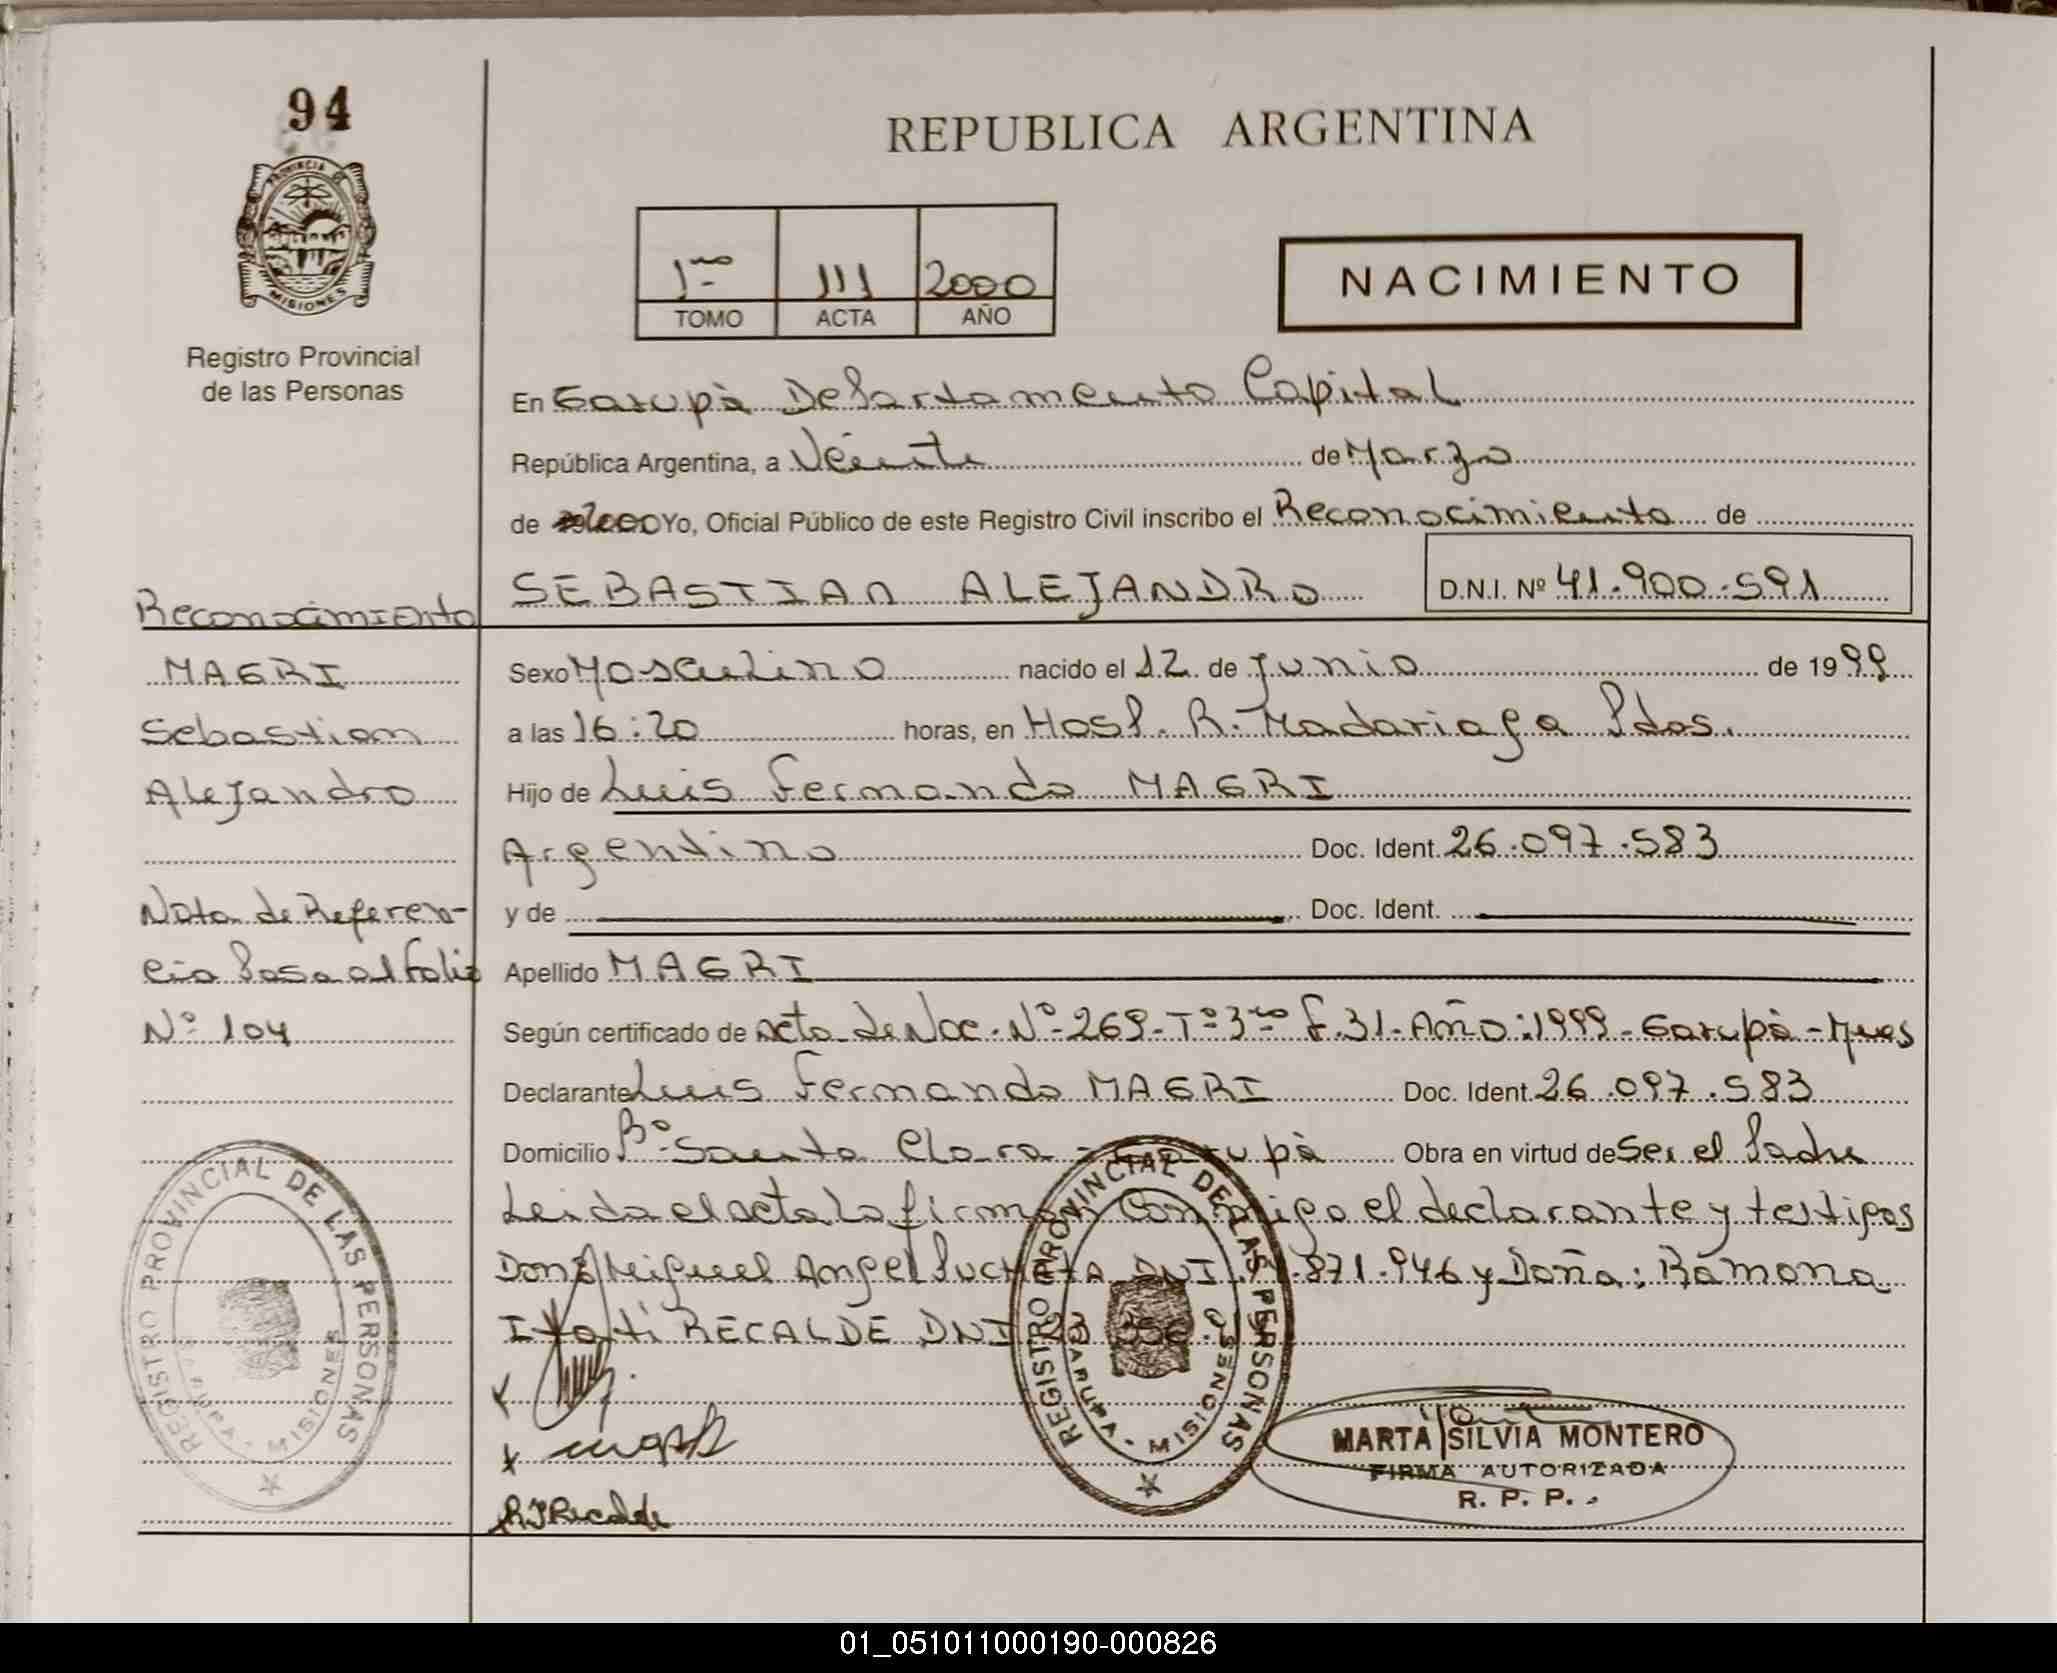 94
REPUBLICA ARGENTINA
PROVINCIA DE
MISIONES
Registro Provincial
de las Personas
1ro 111 2000
TOMO ACTA AÑO
NACIMIENTO
En Garupà Departamento Capital
República Argentina, a Veinte de Marzo
de 2000 Yo, Oficial Público de este Registro Civil inscribo el Reconocimiento de
SEBASTIAN ALEJANDRO D.N.I. Nº 41.900.591
Reconocimiento
MAGRI
Sebastian
Alejandro
Nota de Referen-
cia Pasa al Folio
Nº 104
Sexo Masculino nacido el 12 de Junio de 1999
a las 16:20 horas, en Hosp. R. Madariaga Pdas.
Hijo de Luis Fernando MAGRI
Argentino Doc. Ident. 26.097.583
y de Doc. Ident.
Apellido MAGRI
Según certificado de Acta de Nac. Nº 269-Tº 3ro F.31. Año:1999-Garupà-Mnes
Declarante Luis Fernando MAGRI Doc. Ident. 26.097.583
Domicilio Bº Santa Clara - Garupà Obra en virtud de Ser el Padre
Leida el acta la firman conmigo el declarante y testigos
Don: Miguel Angel DNI .871.946 y Doña: Ramona
Itati RECALDE DNI 23
REGISTRO PROVINCIAL DE LAS PERSONAS
GARUPA - MISIONES
REGISTRO PROVINCIAL DE LAS PERSONAS
GARUPA - MISIONES
x
x
RIRecalde
MARTA SILVIA MONTERO
FIRMA AUTORIZADA
R. P. P.
01_051011000190-000826